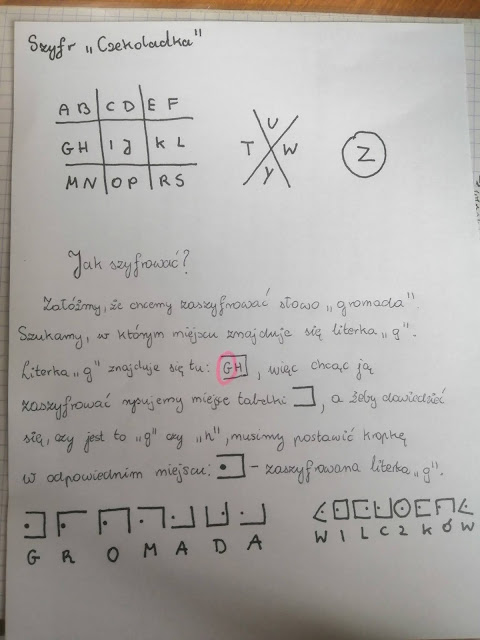 Szyfr „Czekoladka"
A B C D E F
G H I J K L
M N O P R S
U
T W
Y
Z
Jak szyfrować?
Załóżmy, że chcemy zaszyfrować słowo „gromada".
Szukamy, w którym miejscu znajduje się literka „g".
Literka „g" znajduje się tu: GH, więc chcąc ją
zaszyfrować rysujemy miejsce tabelki , a żeby dowiedzieć
się, czy jest to „g" czy „h", musimy postawić kropkę
w odpowiednim miejscu: – zaszyfrowana literka „g".
G R O M A D A
W I L C Z K Ó W